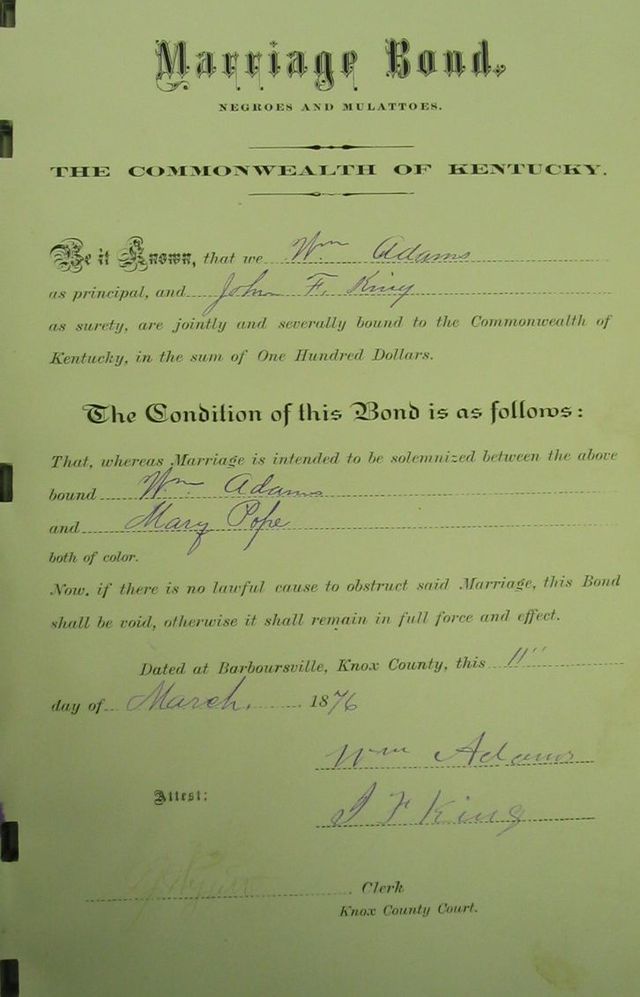 Marriage Bond,
NEGROES AND MULATTOES.
THE COMMONWEALTH OF KENTUCKY.
Be it Known, that we Wm Adams
as principal, and John F. King
as surety, are jointly and severally bound to the Commonwealth of
Kentucky, in the sum of One Hundred Dollars.
The Condition of this Bond is as follows:
That, whereas Marriage is intended to be solemnized between the above
bound Wm Adams
and Mary Pope
both of color.
Now, if there is no lawful cause to obstruct said Marriage, this Bond
shall be void, otherwise it shall remain in full force and effect.
Dated at Barboursville, Knox County, this 11"
day of March. 1876
Wm Adams
Attest:
J F King
Clerk
Knox County Court.